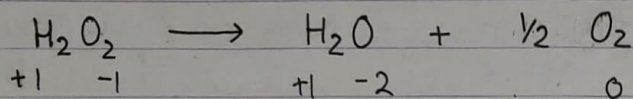 H₂O₂ ⟶ H₂O + ½ O₂
+1 -1 +1 -2 0